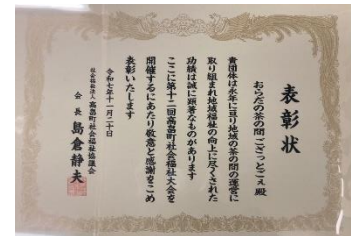 表彰状
おらだの茶の間こざっとごぇ 殿
貴団体は永年に亘り地域の茶の間の運営に
取り組まれ地域福祉の向上に尽くされた
功績は誠に顕著なものがあります
ここに第十二回高畠町社会福祉大会を
開催するにあたり敬意と感謝をこめ
表彰いたします
令和七年十一月二十日
社会福祉法人 高畠町社会福祉協議会
会長 島倉静夫